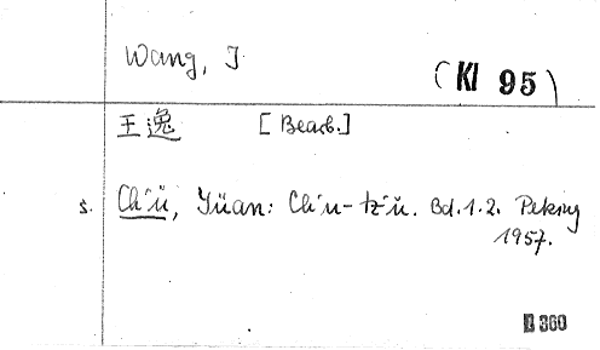 Wang, I.
(KI 95)
王逸 [Bearb.]
s. Ch'ü, Yüan: Ch'u-tz'ŭ. Bd.1.2. Peking
1957.
B 360